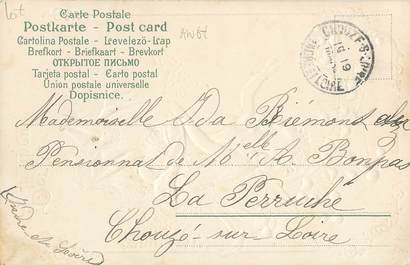 Lot
AW67
Carte Postale
Postkarte - Post card
Cartolina Postale - Levelező-Lap
Brefkort - Briefkaart - Brevkort
ОТКРЫТОЕ ПИСЬМО
Tarjeta postal - Carto postal
Union postale universelle
Dopisnice.
CHOUZÉ-S-LOIRE
19
Mademoiselle Ida Riémont
Pensionnat de Melle A. Bompas
La Perruche
Chouzé-sur-Loire